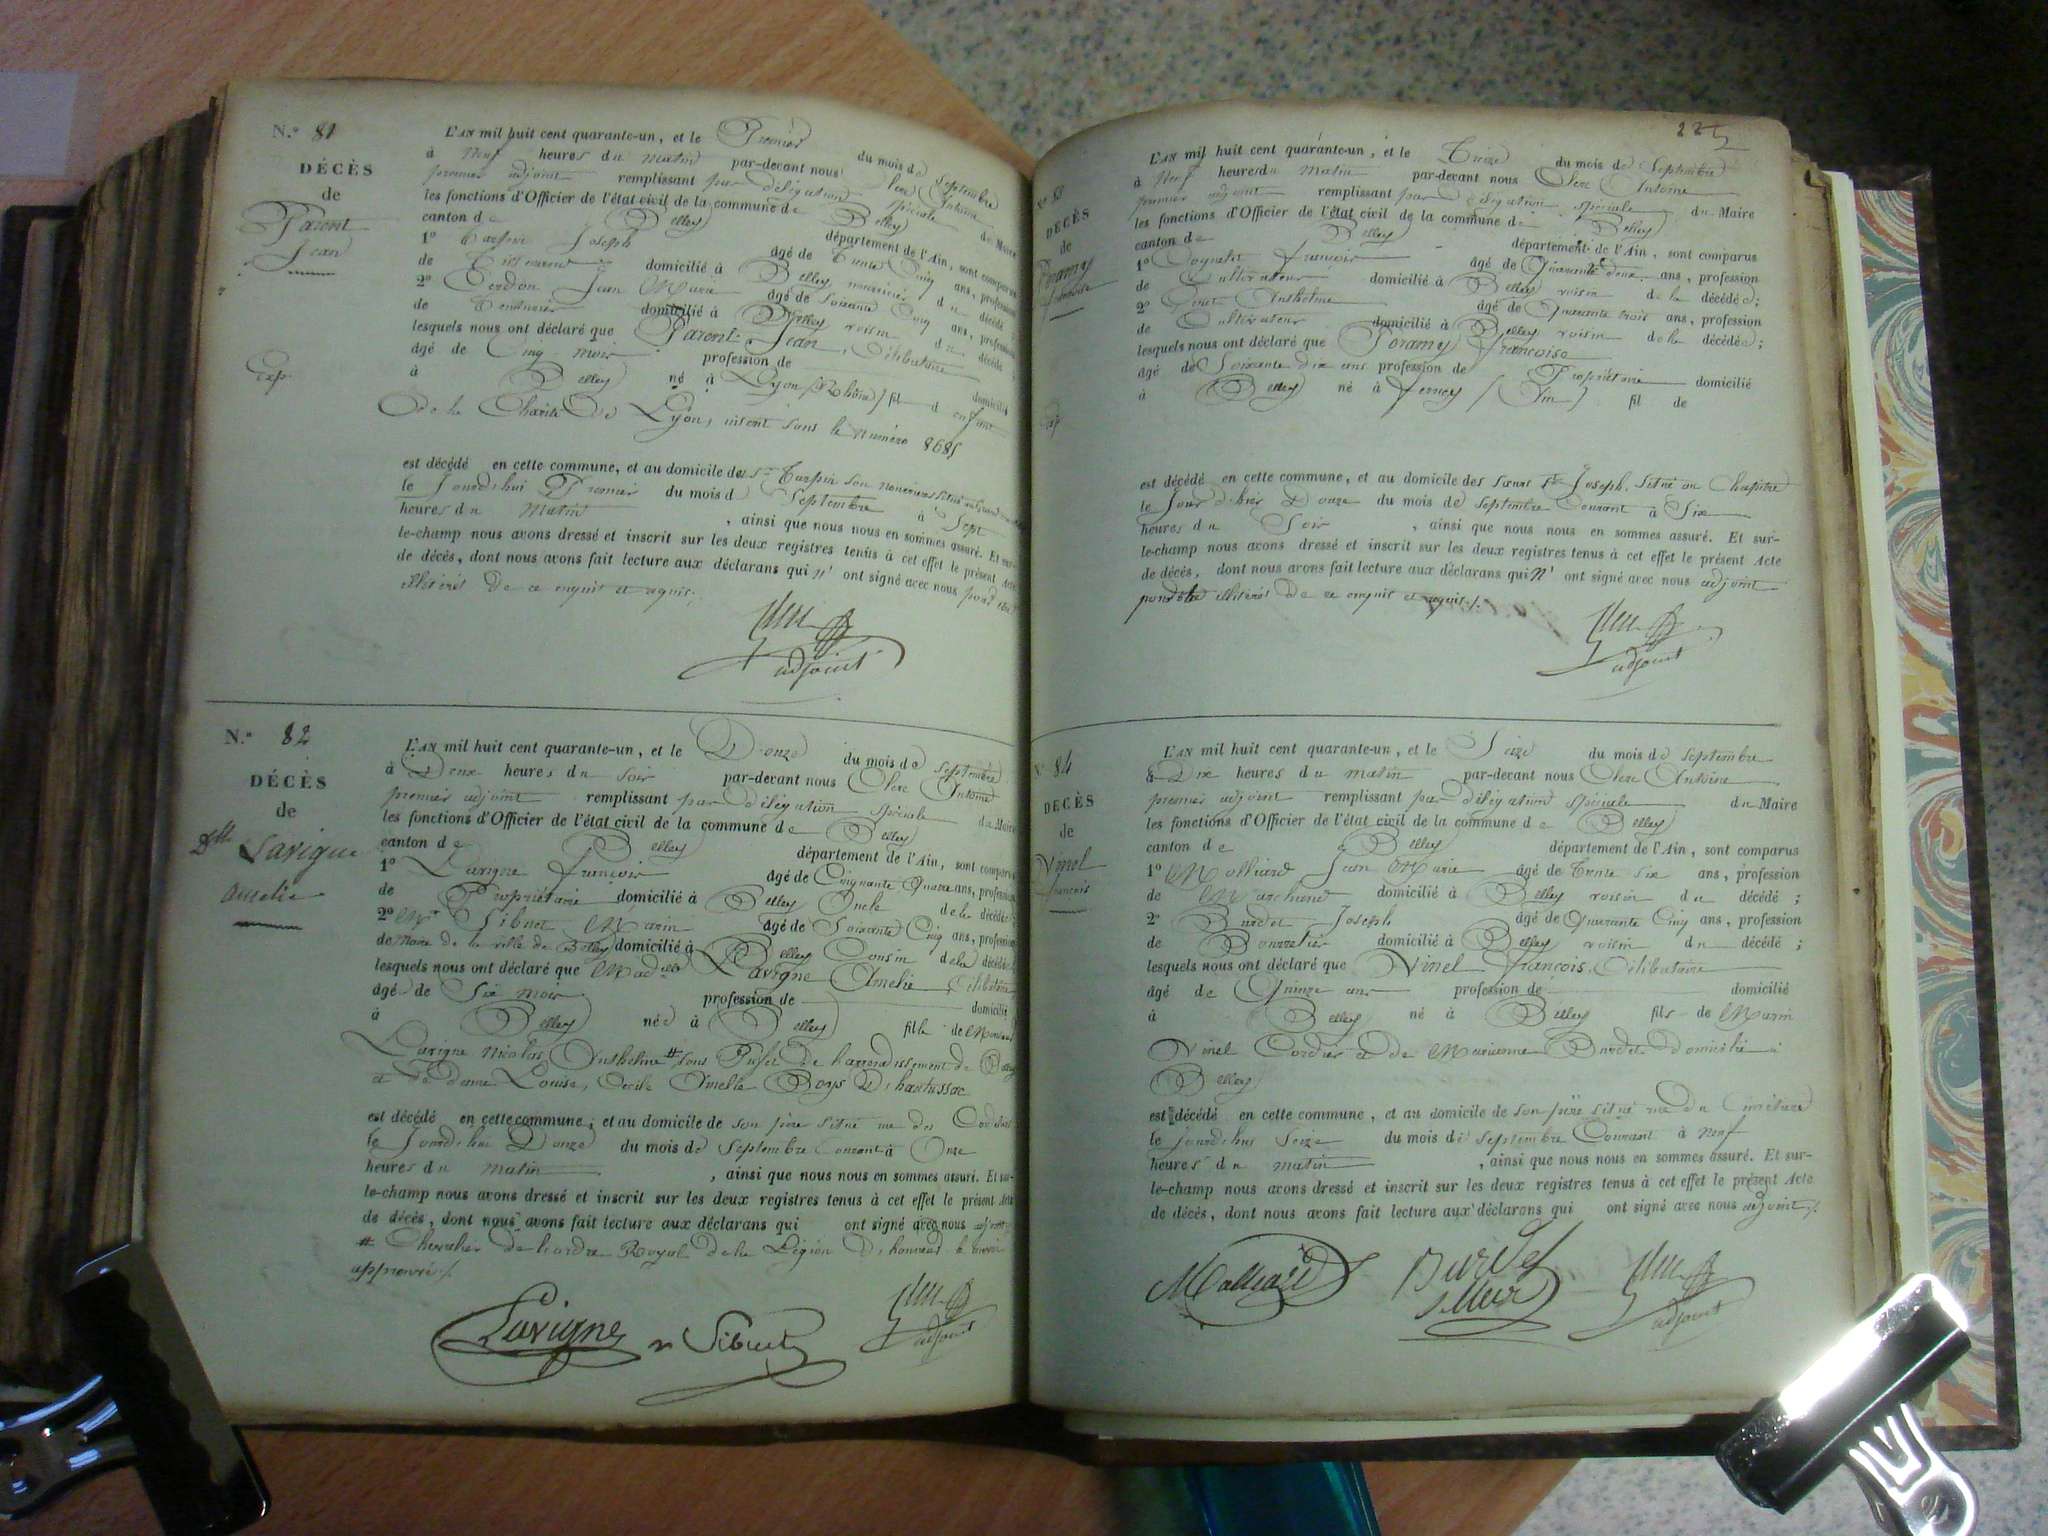 N.° 81
DÉCÈS
de
Parent
Jean
Exp
L'AN mil huit cent quarante-un, et le Premier du mois de Septembre
à Neuf heures du matin par-devant nous Clerc Antoine
premier adjoint remplissant par délégation spéciale du Maire
les fonctions d'Officier de l'état civil de la commune de Belley
canton de Belley département de l'Ain, sont comparus
1° Joseph âgé de Trente Cinq ans, profession
de domicilié à Belley nourricier du décédé
2° Cerdon Jean Marie âgé de Soixante Cinq ans, profession
de domicilié à Belley voisin du décédé ;
lesquels nous ont déclaré que Parent Jean, Célibataire
âgé de Cinq mois profession de domicilié
à Belley né à Lyon (Rhône) fils d'enfant
De la Charité De Lyon, inscrit sous le numéro 8685
est décédé en cette commune, et au domicile du sr Turpin son nourricier situé
le Jourd'hui Premier du mois de Septembre à Sept
heures du Matin , ainsi que nous nous en sommes assuré. Et sur-
le-champ nous avons dressé et inscrit sur les deux registres tenus à cet effet le présent Acte
de décès, dont nous avons fait lecture aux déclarans qui n' ont signé avec nous pour être
illitérés De ce enquis et requis.
adjoint
N.° 82
DÉCÈS
de
Dlle Lavigne
Amélie
L'AN mil huit cent quarante-un, et le Douze du mois de Septembre
à Deux heures du soir par-devant nous Clerc Antoine
premier adjoint remplissant par délégation spéciale du Maire
les fonctions d'Officier de l'état civil de la commune de Belley
canton de Belley département de l'Ain, sont comparus
1° Lavigne François âgé de Cinquante Quatre ans, profession
de Propriétaire domicilié à Belley Oncle de la décédée
2° Mr Sibuet Marin âgé de Soixante Cinq ans, profession
de Maire de la ville de Belley domicilié à Belley Cousin de la décédée
lesquels nous ont déclaré que Madlle Lavigne Amélie, Célibataire
âgé de Six mois profession de domicilié
à Belley née à Belley fille de Monsieur
Lavigne Nicolas, Anthelme # sous Préfet De l'arrondissement de Belley
et de dame Louise, Cécile Boys D'hautussac
est décédé en cette commune, et au domicile de son père situé rue des
le Jourd'hui Douze du mois de Septembre Courant à Onze
heures du matin , ainsi que nous nous en sommes assuré. Et sur-
le-champ nous avons dressé et inscrit sur les deux registres tenus à cet effet le présent Acte
de décès, dont nous avons fait lecture aux déclarans qui ont signé avec nous adjoint
# Chevalier de l'ordre Royal de la Légion D'honneur le renvoi
approuvé
Lavigne
Sibuet
adjoint
225
N° 83
DÉCÈS
de
L'AN mil huit cent quarante-un, et le Treize du mois de Septembre
à Neuf heures du Matin par-devant nous Clerc Antoine
premier adjoint remplissant par délégation spéciale du Maire
les fonctions d'Officier de l'état civil de la commune de Belley
canton de Belley département de l'Ain, sont comparus
1° François âgé de Quarante deux ans, profession
de Cultivateur domicilié à Belley voisin de la décédée ;
2° Anthelme âgé de Quarante trois ans, profession
de Cultivateur domicilié à Belley voisin de la décédée ;
lesquels nous ont déclaré que Françoise
âgé de Soixante dix ans profession de Propriétaire domicilié
à Belley né à (Ain) fil de
est décédé en cette commune, et au domicile des Sœurs St Joseph, situé au Chapitre
le Jour d'hier Douze du mois de Septembre Courant à Six
heures du Soir , ainsi que nous nous en sommes assuré. Et sur-
le-champ nous avons dressé et inscrit sur les deux registres tenus à cet effet le présent Acte
de décès, dont nous avons fait lecture aux déclarans qui n' ont signé avec nous adjoint
pour être illitérés De ce enquis et requis
adjoint
N° 84
DÉCÈS
de
Vinel
François
L'AN mil huit cent quarante-un, et le Seize du mois de Septembre
à Dix heures du matin par-devant nous Clerc Antoine
premier adjoint remplissant par délégation spéciale du Maire
les fonctions d'Officier de l'état civil de la commune de Belley
canton de Belley département de l'Ain, sont comparus
1° Molliard Jean Marie âgé de Trente six ans, profession
de Marchand domicilié à Belley voisin du décédé ;
2° Burdet Joseph âgé de Quarante Cinq ans, profession
de Bourrelier domicilié à Belley voisin du décédé ;
lesquels nous ont déclaré que Vinel François, Célibataire
âgé de Quinze ans profession de domicilié
à Belley né à Belley fils de Marin
Vinel Cordier et de Marianne Burdet domicilié à
Belley
est décédé en cette commune, et au domicile de son père situé rue du Cimetière
le Jourd'hui Seize du mois de Septembre Courant à Neuf
heures du matin , ainsi que nous nous en sommes assuré. Et sur-
le-champ nous avons dressé et inscrit sur les deux registres tenus à cet effet le présent Acte
de décès, dont nous avons fait lecture aux déclarans qui ont signé avec nous adjoint
Molliard
Burdet
adjoint